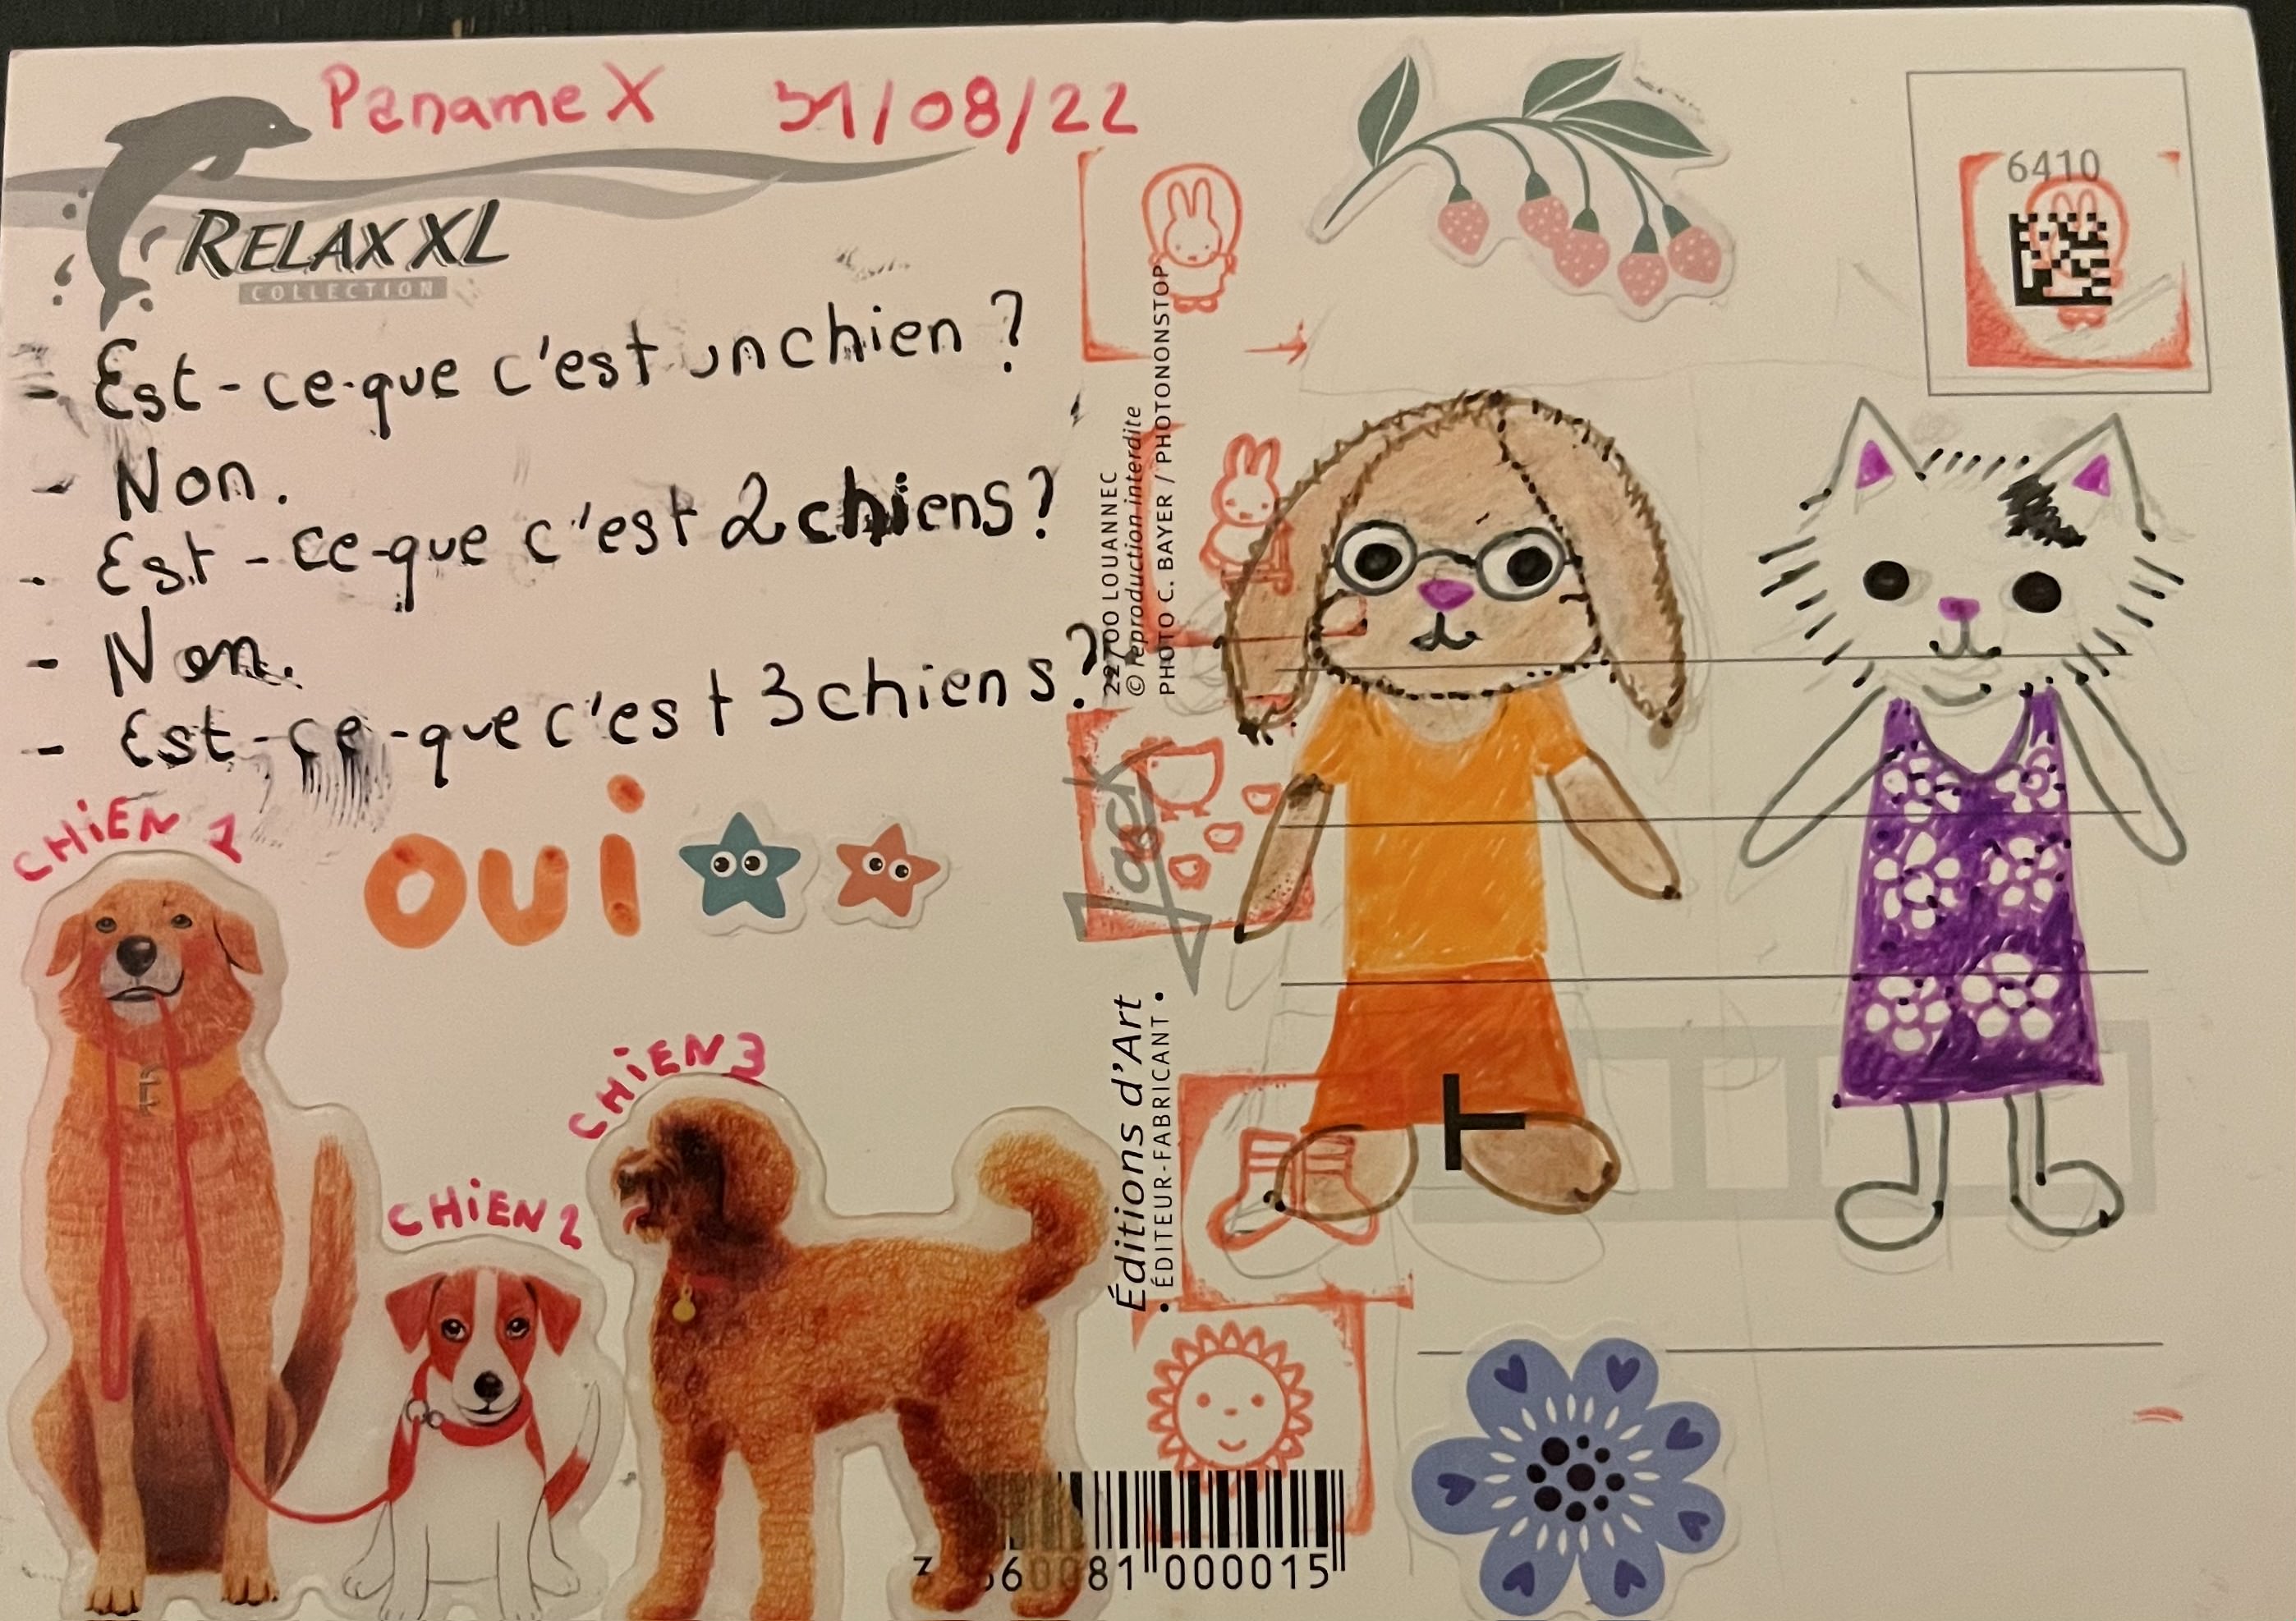 Paname X 31/08/22
RELAX XL
COLLECTION
- Est-ce-que c'est un chien ?
- Non.
- Est-ce-que c'est 2 chiens ?
- Non.
- Est-ce-que c'est 3 chiens ?
OUi
CHiEN 1
CHiEN 2
CHiEN 3
22700 LOUANNEC
© reproduction interdite
PHOTO C. BAYER / PHOTONONSTOP
Jack
Éditions d'Art
• ÉDITEUR-FABRICANT •
6410
000015